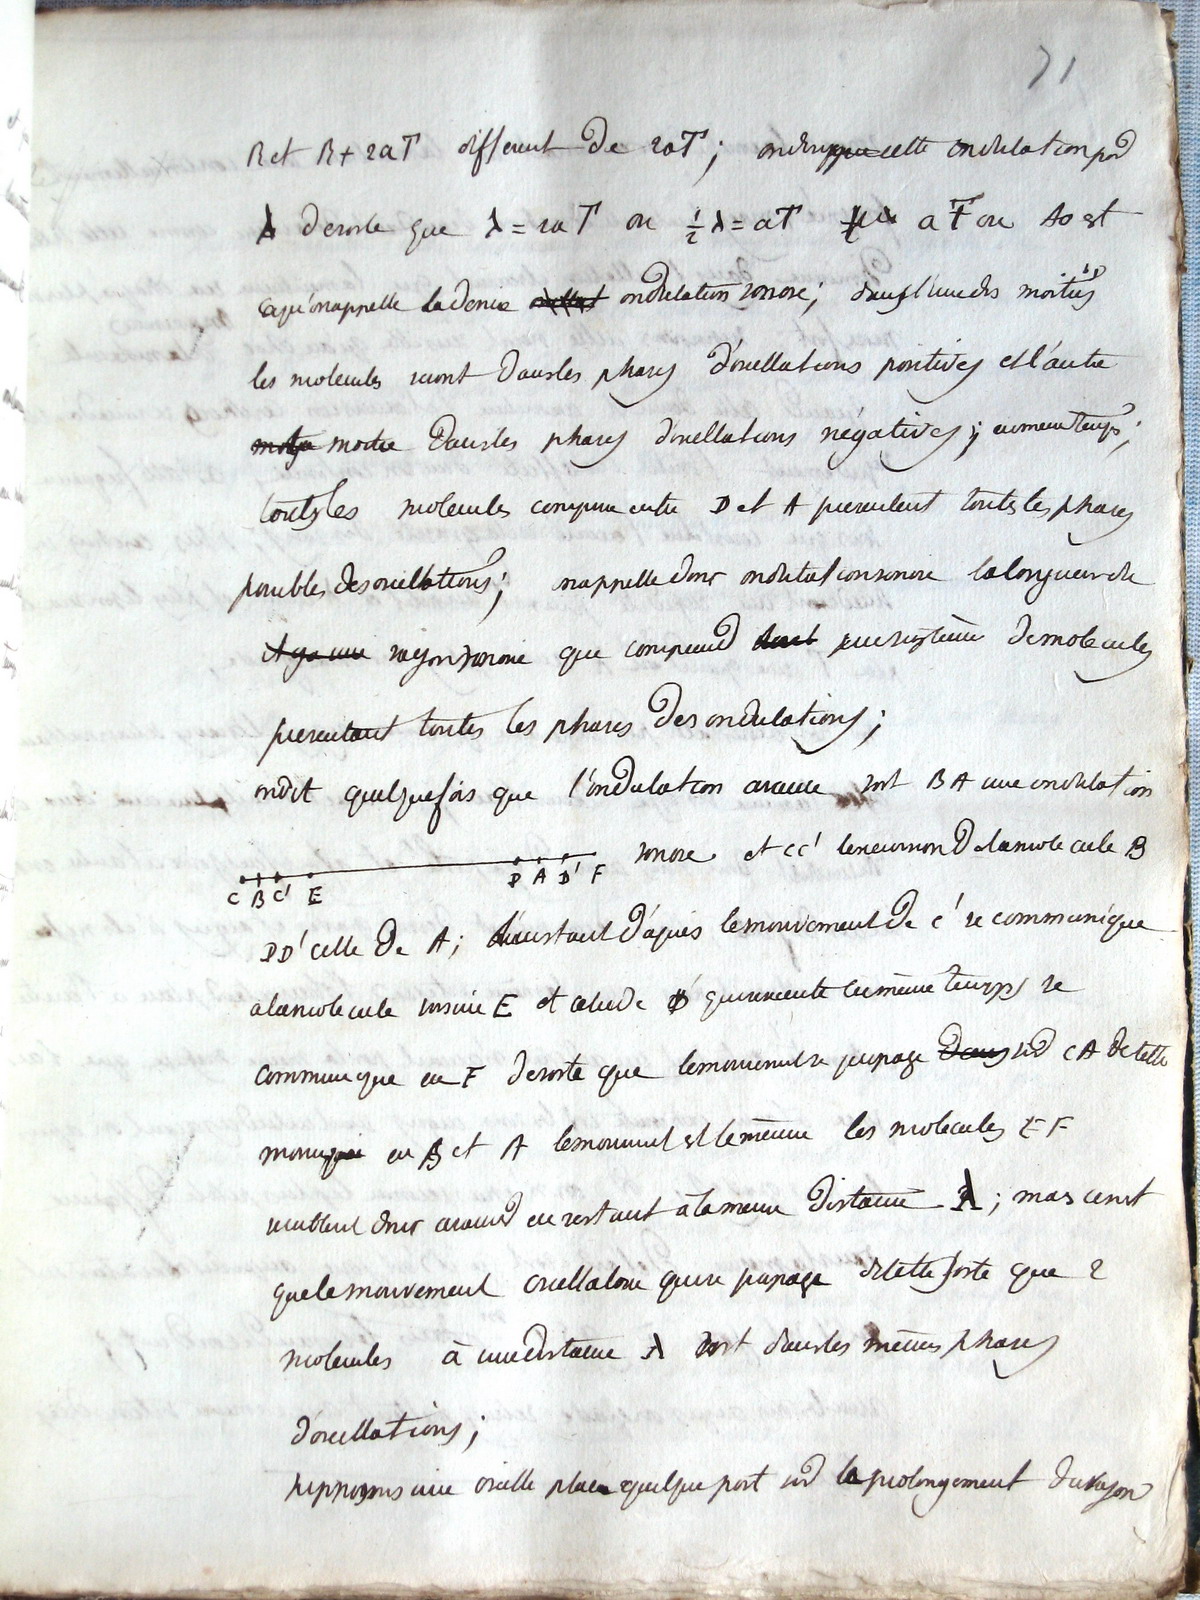 71
R et R + 2aT different de 2aT; cette ondulation par
λ de sorte que λ = 2aT ou ½λ = aT aT ou AO est
ce qu'on appelle la demie ondulation sonore; dans l'une des moitiés
les molecules seront dans les phases d'oscillations positives et l'autre
moitie dans les phases d'oscillations négatives; en meme temps;
toutes les molecules comprise entre D et A presentent toutes les phases
possibles des oscillations; on appelle donc ondulation sonore la longueur de
rayon sonore que comprend un systeme de molecules
presentant toutes les phases des ondulations;
on dit quelquefois que l'ondulation avance soit BA une ondulation
sonore et CC' l'excursion de la molecule B
C B C' E D A D' F
DD' celle de A; l'instant d'après le mouvement de C' se communique
a la molecule voisine E et celui de D' qui execute en même temps se
communique en F de sorte que le mouvement se propage sur CA de telle
en B et A le mouvement est le même les molecules E F
semblent donc avancer en restant a la meme distance λ; mais ce n'est
que le mouvement oscillatoire qui se propage de telle sorte que 2
molecules à une distance λ sont dans les mêmes phases
d'oscillations;
supposons une oreille placee quelque part sur le prolongement du rayon